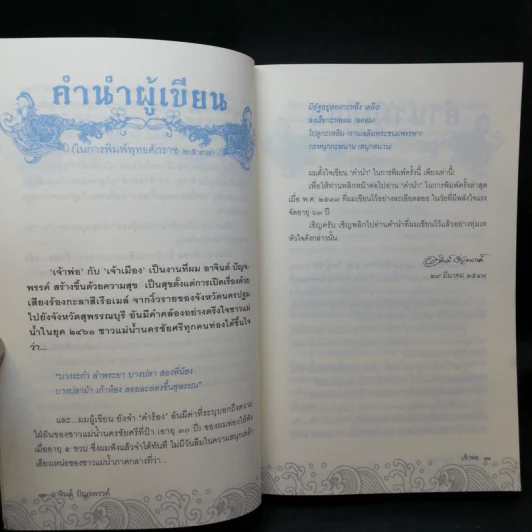 คำนำผู้เขียน
(ในการพิมพ์พุทธศักราช ๒๕๔๗)
'เจ้าพ่อ' กับ 'เจ้าเมือง' เป็นงานที่ผม อาจินต์ ปัญจ-
พรรค์ สร้างขึ้นด้วยความสุข เป็นสุขตั้งแต่การเปิดเรื่องด้วย
เสียงร้องกะลาสีเรือเมล์ จากงิ้วรายของจังหวัดนครปฐม
ไปยังจังหวัดสุพรรณบุรี อันมีค่าคล้องอย่างตรึงใจชาวแม่
น้ำในยุค ๒๔๖๑ ชาวแม่น้ำนครชัยศรีทุกคนท่องได้ขึ้นใจ
ว่า...
"บางระกำ ลำพระยา บางปลา สองพี่น้อง
บางปลาม้า เก้าห้อง ลอยละล่องขึ้นสุพรรณ"
และ...ผมผู้เขียน ยังจำ 'คำร้อง' อันมีค่าที่ระบุบอกถึงความ
ใฝ่ฝันของชาวแม่น้ำนครชัยศรีที่ป้า (อายุ ๓๐ ปี) ของผมท่องให้ฟัง
เมื่ออายุ ๕ ขวบ ซึ่งผมฟังแล้วจำได้ทันที ไม่มีวันลืมในความสนุกแห่งถ้ำ
เสียงเหน่อของชาวแม่น้ำภาคกลางที่ว่า...
๑๐ อาจินต์ ปัญจพรรค์
มีอัฐอยู่สองกะหลึง (สลึง)
ลงเรือกะหลอม (ฉลอม)
ไปดูกะเหลิม (งานเฉลิมพระชนมพรรษา)
กะหนุกะหนาน (สนุกสนาน)
ผมตั้งใจเขียน "คำนำ" ในการพิมพ์ครั้งนี้ เพียงเท่านี้!
เพื่อให้ท่านพลิกหน้าต่อไปอ่าน "คำนำ" ในการพิมพ์ครั้งล่าสุด
เมื่อ พ.ศ. ๒๕๓๓ ที่ผมเขียนไว้อย่างละเอียดลออ ในวัยที่มีพลังใจแรง
จัดอายุ ๖๓ ปี
เชิญครับ เชิญพลิกไปอ่านคำนำที่ผมเขียนไว้แล้วอย่างทุ่มเท
หัวใจดังกล่าวนั้น
๒๙ มีนาคม ๒๕๔๗
เจ้าพ่อ ๑๑